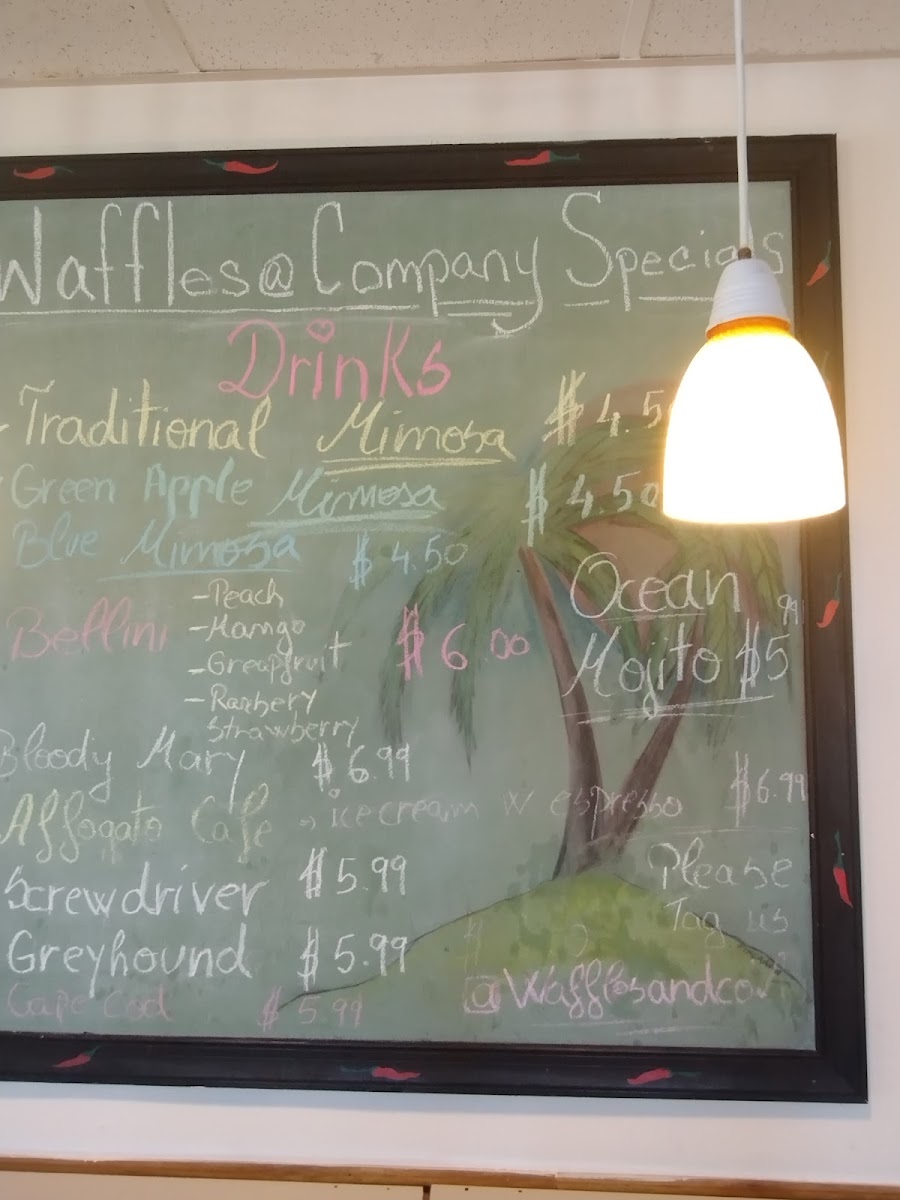 Waffles@Company Specials
Drinks
-Traditional Mimosa $4.5
Green Apple Mimosa $4.50
Blue Mimosa $4.50
Bellini $6.00
-Peach
-Mango
-Greapfruit
-Rasbery
Strawberry
Ocean
Mojito $5 99
Bloody Mary $6.99
Affogato Cafe → ice cream w espresso $6.99
Screwdriver $5.99
Greyhound $5.99
Cape Cod $5.99
Please
Tag us